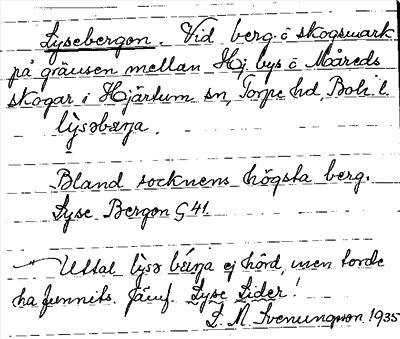 Lysebergen. Vid berg o skogsmark
på gränsen mellan Hj. bys o Måreds
skogar i Hjärtum sn, Torpe hd, Boh. l.
lỳsəbæŋa.
Bland socknens högsta berg.
Lyse Bergen G 41.
Uttal lỳsə bǽŋa ej hörd, men torde
ha funnits. Jämf. Lyse Lider!
L. M. Svenungsson. 1935